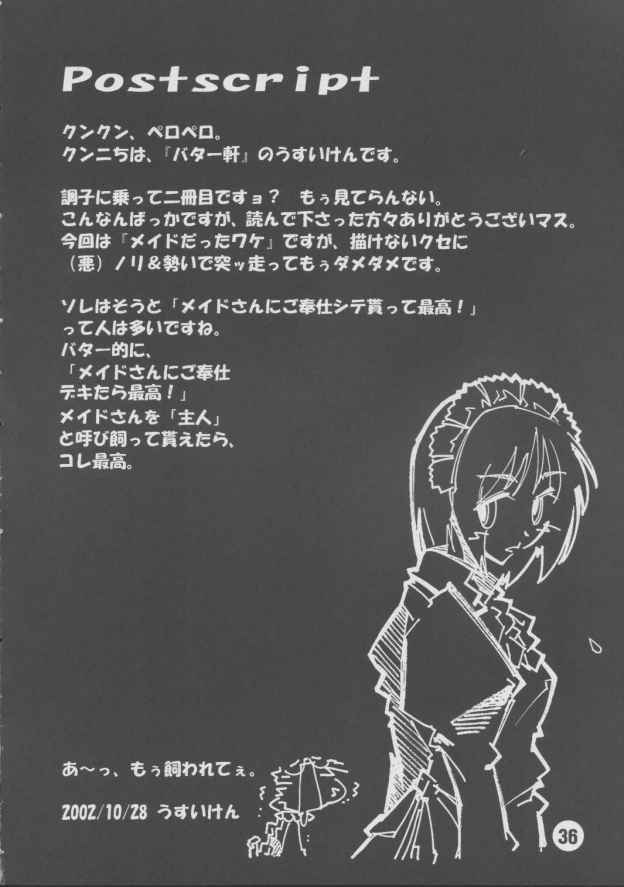 Postscript
クンクン、ペロペロ。
クンニちは、『バター軒』のうすいけんです。
調子に乗って二冊目ですョ？　もぅ見てらんない。
こんなんばっかですが、読んで下さった方々ありがとうございマス。
今回は『メイドだったワケ』ですが、描けないクセに
（悪）ノリ＆勢いで突ッ走ってもぅダメダメです。
ソレはそうと「メイドさんにご奉仕シテ貰って最高！」
って人は多いですね。
バター的に、
「メイドさんにご奉仕
デキたら最高！」
メイドさんを「主人」
と呼び飼って貰えたら、
コレ最高。
あ〜っ、もぅ飼われてぇ。
2002/10/28 うすいけん
36